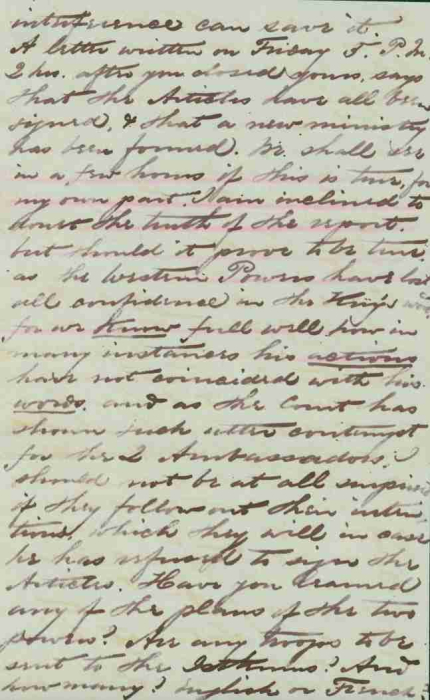 interference can save it.
A letter written on Friday 5. P.M.
2 hrs. after you closed yours, says
that the Articles have all been
signed, & that a new ministry
has been formed. We shall see
in a few hours if this is true, for
my own part I am inclined to
doubt the truth of the report.
but should it prove to be true
as the Western Powers have lost
all confidence in the King's word,
for we know full well how in
many instances his actions
have not coincided with his
words. and as the Court has
shown such utter contempt
for the 2 Ambassadors, I
should not be at all surprised
if they follow out their inten
tions, which they will in case
he has refused to sign the
Articles. Have you learned
any of the plans of the two
powers? Are any troops to be
sent to the Isthmus? And
how many? English or French?